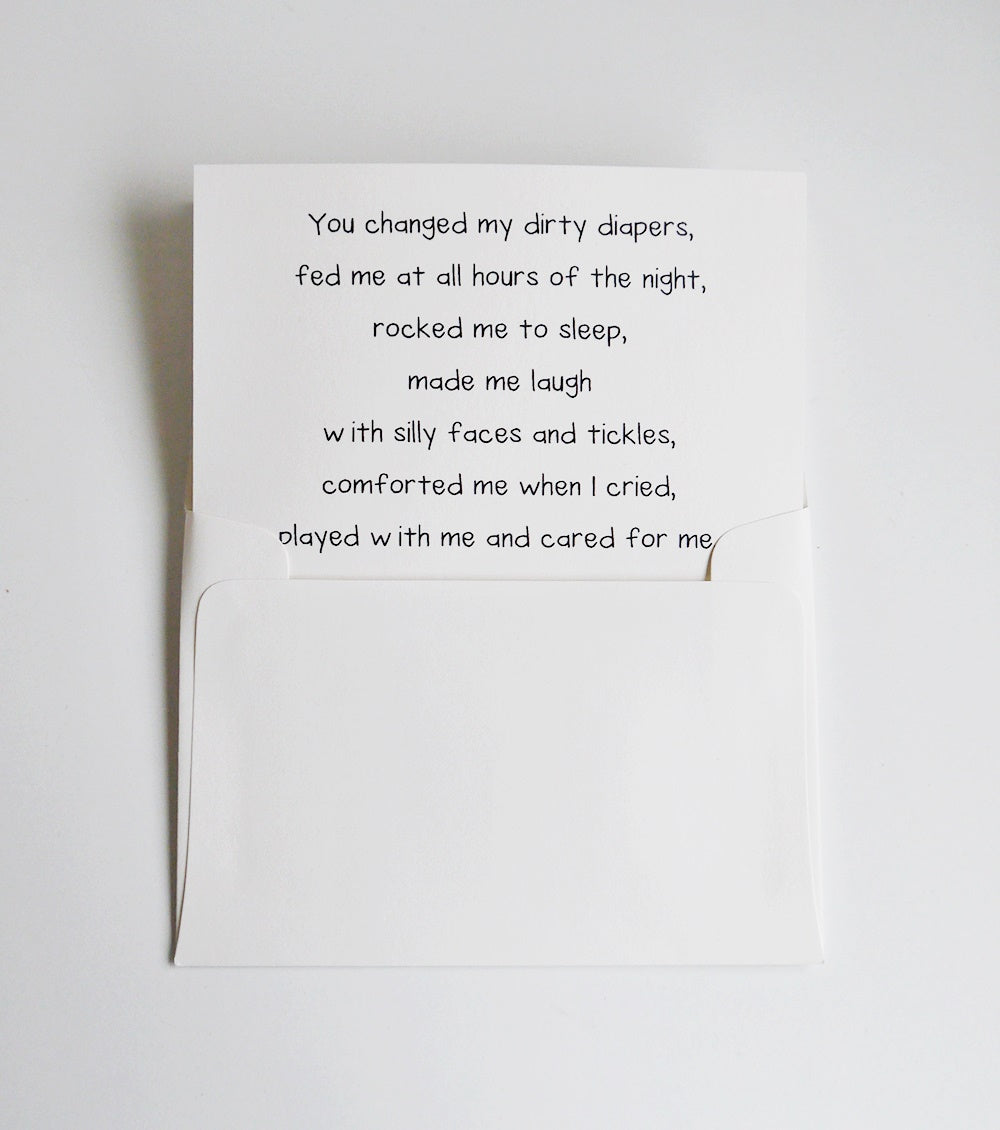 You changed my dirty diapers,
fed me at all hours of the night,
rocked me to sleep,
made me laugh
with silly faces and tickles,
comforted me when I cried,
played with me and cared for me